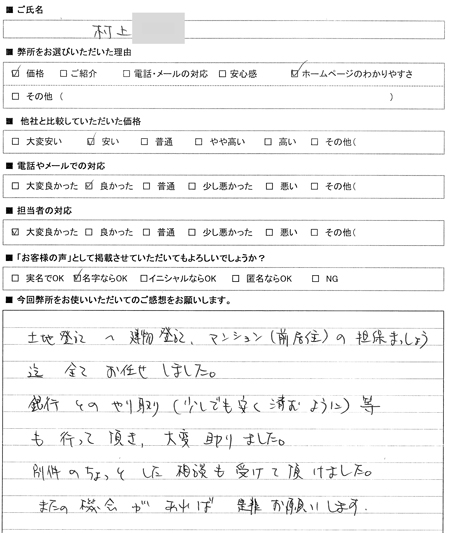 ■ ご氏名
村上
■ 弊所をお選びいただいた理由
☑ 価格 □ ご紹介 □ 電話・メールの対応 □ 安心感 ☑ ホームページのわかりやすさ
□ その他 ( )
■ 他社と比較していただいた価格
□ 大変安い ☑ 安い □ 普通 □ やや高い □ 高い □ その他(
■ 電話やメールでの対応
□ 大変良かった ☑ 良かった □ 普通 □ 少し悪かった □ 悪い □ その他(
■ 担当者の対応
☑ 大変良かった □ 良かった □ 普通 □ 少し悪かった □ 悪い □ その他(
■ 「お客様の声」として掲載させていただいてもよろしいでしょうか?
□ 実名でOK ☑ 名字ならOK □ イニシャルならOK □ 匿名ならOK □ NG
■ 今回弊所をお使いいただいてのご感想をお願いします。
土地登記 〜 建物登記、マンション(前居住)の担保まっしょう
迄 全て お任せしました。
銀行とのやり取り(少しでも安く済むように)等
も行って頂き、大変助りました。
別件のちょっとした相談も受けて頂けました。
またの機会があれば 是非お願いします.